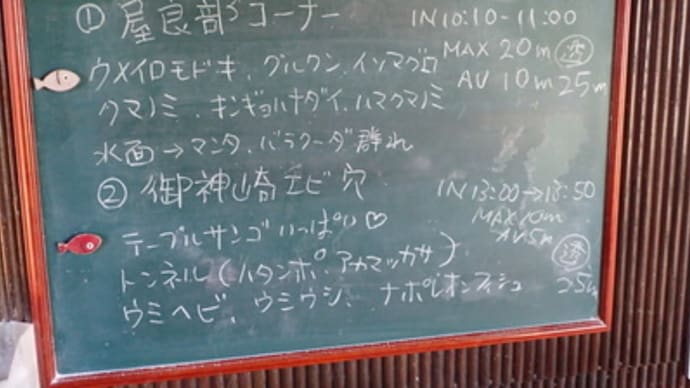 ① 屋良部3コーナー IN 10:10-11:00
MAX 20m 透
ウメイロモドキ、グルクン、イソマグロ AV 10m 25m
クマノミ、キンギョハナダイ、ハマクマノミ
水面→マンタ、バラクーダ群れ
② 御神崎エビ穴 IN 13:00→13:50
MAX 10m
テーブルサンゴいっぱい♡ AV 5m
透
トンネル(ハタンポ、アカマツカサ)
ウミヘビ、ウミウシ、ナポレオンフィシュ 25m